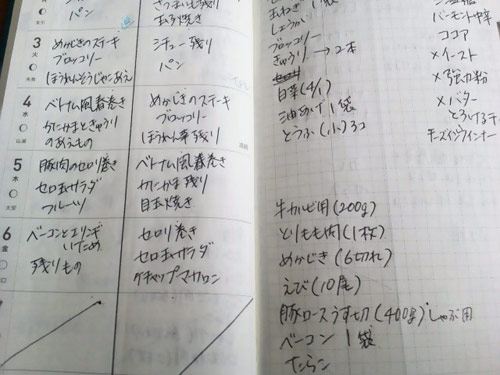 パン
さつまいも残り
3
火
めかじきのステーキ
ブロッコリー
ほうれんそうじゃあえ
シチュー残り
パン
4
水
ベトナム風春巻き
かにかまときゅうり
のあえもの
めかじきのステーキ
ブロッコリー
ほうれん草残り
5
木
豚肉のセロリ巻き
セロリサラダ
フルーツ
ベトナム風春巻き
かにかま残り
目玉焼き
6
金
ベーコンとエリンギ
いため
残りもの
セロリ巻き
セロリサラダ
ケチャップマカロニ
1袋
しょうが
ブロッコリー
きゅうり→2本
白菜(1/4)
油あげ1袋
とうふ(小)3コ
バーモント中辛
ココア
×イースト
×強力粉
×バター
とろけるチーズ
牛カルビ用(200g)
とりもも肉(1枚)
めかじき(6切れ)
えび(10尾)
豚ロースうす切(400g)しゃぶ用
ベーコン 1袋
たらこ